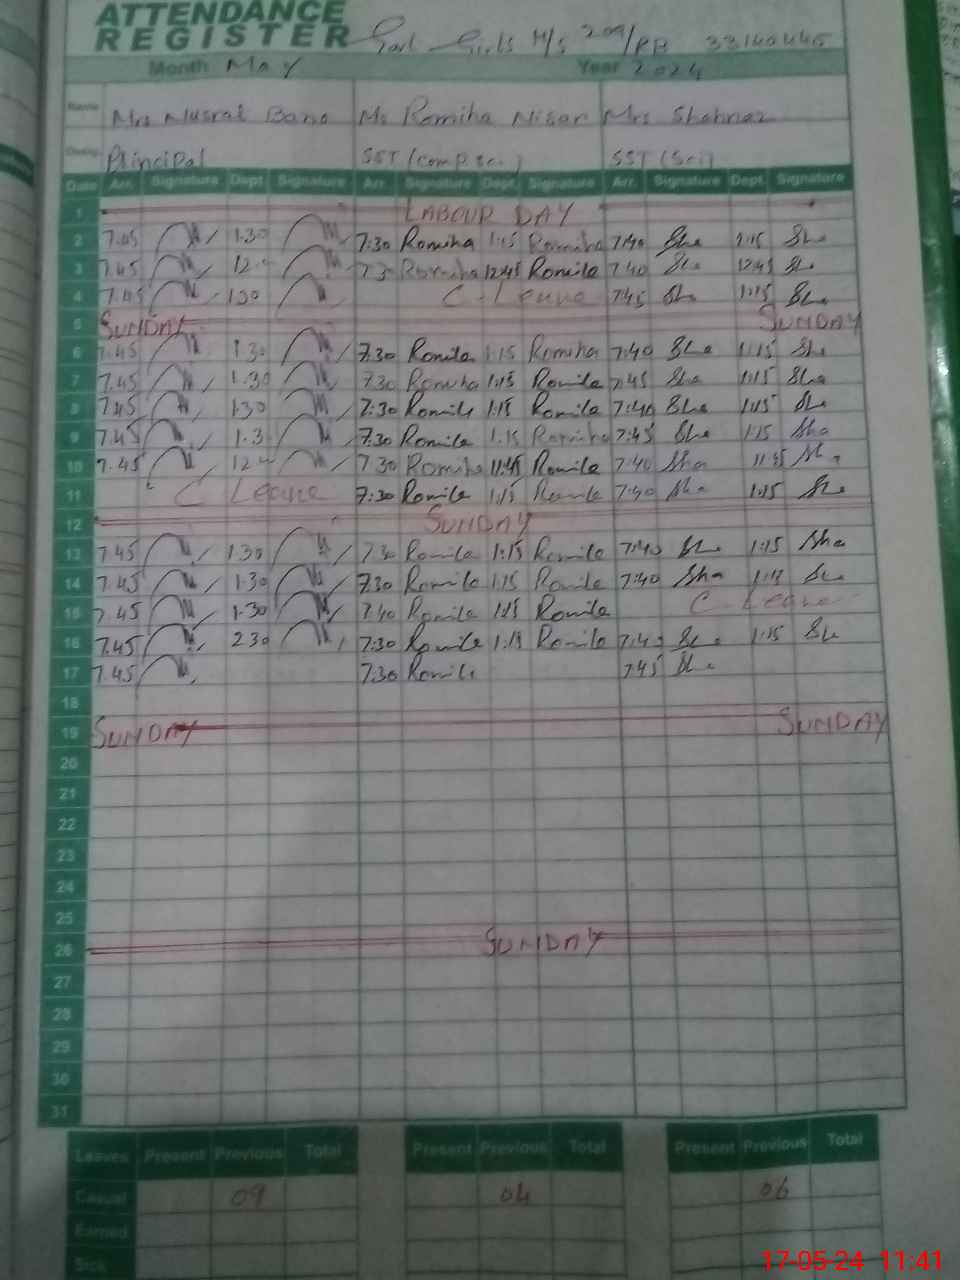 ATTENDANCE
REGISTER Govt Girls H/S 209/RB 33140445
Month May Year 2024
Name Mrs Nusrat Bano Ms Romiha Nisar Mrs Shahnaz
Desig. Principal SST (comp sci) SST (Sci)
Date Arr. Signature Dept. Signature Arr. Signature Dept. Signature Arr. Signature Dept. Signature
1 LABOUR DAY
2 7.45 1.30 7:30 Romiha 1:15 Romiha 7:40 Sha 1:15 Sha
3 7.45 7:30 Romiha 12:45 Romila 7:40 Sha 12:45 Sha
4 7.45 C-Leave 7:45 Sha 1:15 Sha
5 SUNDAY SUNDAY
6 7.45 1.30 7.30 Romila 1:15 Romiha 7:40 Sha 1:15 Sha
7 7.45 1.30 7.30 Romiha 1:15 Romila 7:45 Sha 1:15 Sha
8 7.45 1.30 7:30 Romila 1:15 Romila 7:40 Sha 1:15 Sha
9 7.45 1.3 7.30 Romila 1.15 Romiha 7:45 Sha 1:15 Sha
10 7.45 7.30 Romiha 11:45 Romila 7:40 Sha 11:45 Sha
11 C Leave 7:30 Romila 1:15 Romila 7:40 Sha 1:15 Sha
12 SUNDAY
13 7.45 1.30 7.30 Romila 1:15 Romila 7:40 Sha 1:15 Sha
14 7.45 1.30 7.30 Romila 1:15 Romila 7:40 Sha 1:15 Sha
15 7.45 1.30 7.40 Romila 1:15 Romila C Leave
16 7.45 2.30 7:30 Romila 1:15 Romila 7:40 Sha 1:15 Sha
17 7.45 7.30 Romila 7:45 Sha
18
19 SUNDAY SUNDAY
20
21
22
23
24
25
26 SUNDAY
27
28
29
30
31
Leaves Present Previous Total Present Previous Total Present Previous Total
Casual 09 04 06
Earned
Sick
17-05-24 11:41